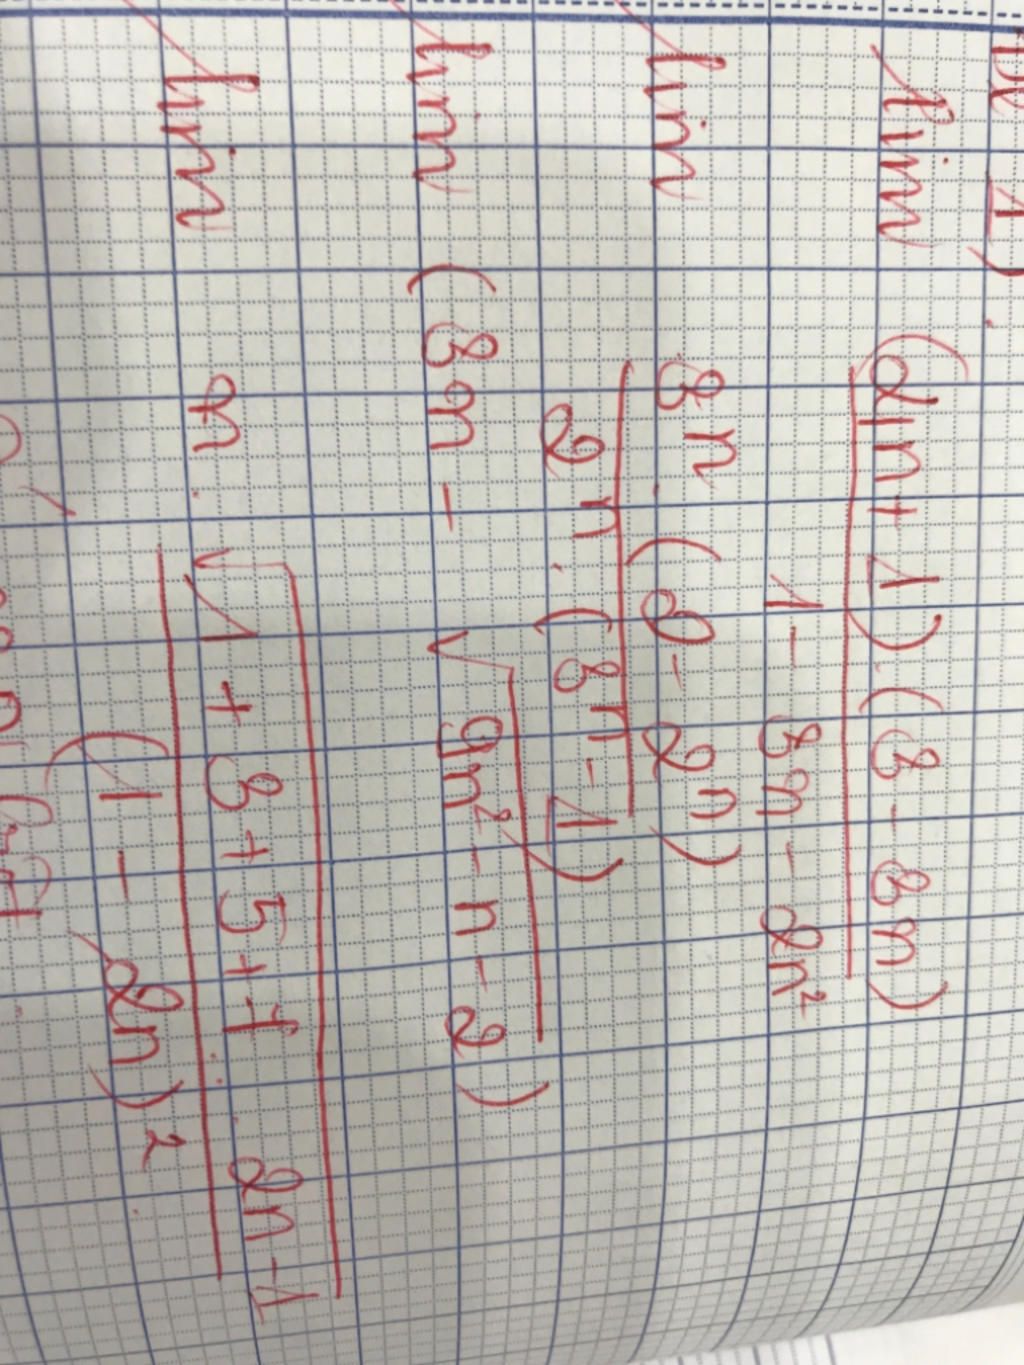 1)
lim (2n+1).(3-3n)
1-3n-2n²
lim 3n.(2-2n)
2n.(3n-1)
lim (3n-√9n²-n-2)
lim n.√1+3+5+...2n-1
(1-2n)²